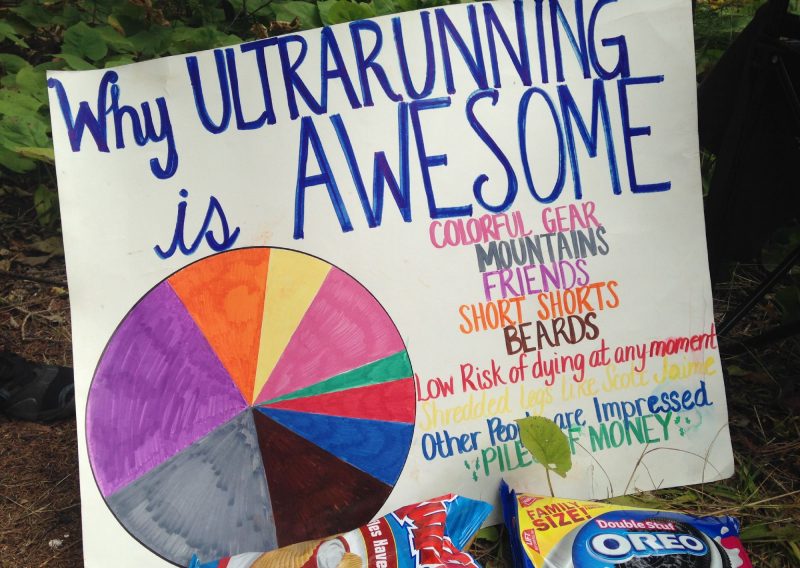 Why ULTRARUNNING
is AWESOME
COLORFUL GEAR
MOUNTAINS
FRIENDS
SHORT SHORTS
BEARDS
Low Risk of dying at any moment
Shredded Legs Like Scott Jaime
Other People are Impressed
PILES OF MONEY
FAMILY
SIZE!
Double Stuf
OREO